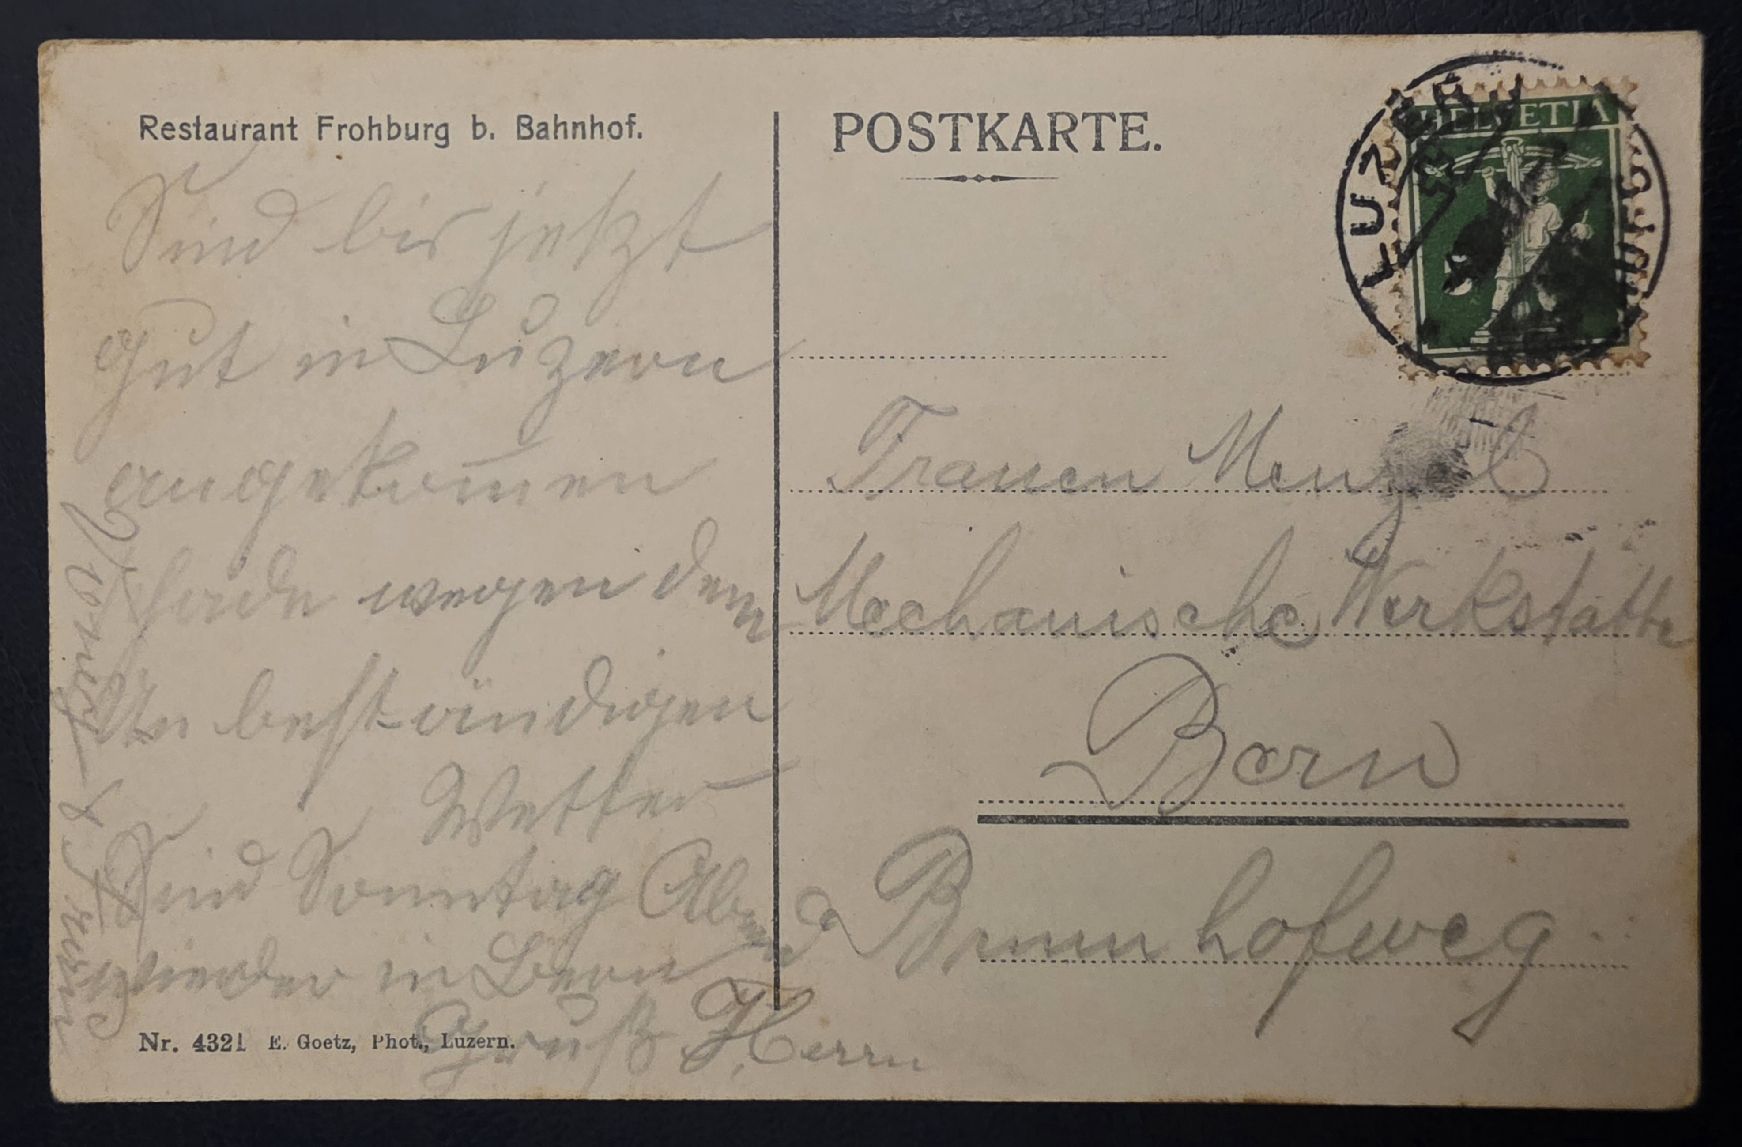 Restaurant Frohburg b. Bahnhof.
Sind bis jetzt
gut in Luzern
angekom̅en
schade wegen dem
un beständigen
Wetter
Sind Sonntag Abend
wieder in Bern
Gruß
Herrn
Nr. 4321 E. Goetz, Phot., Luzern.
POSTKARTE.
LUZERN
HELVETIA
Frauen Menzel
Mechanische Werkstätte
Bern
Brunnhofweg